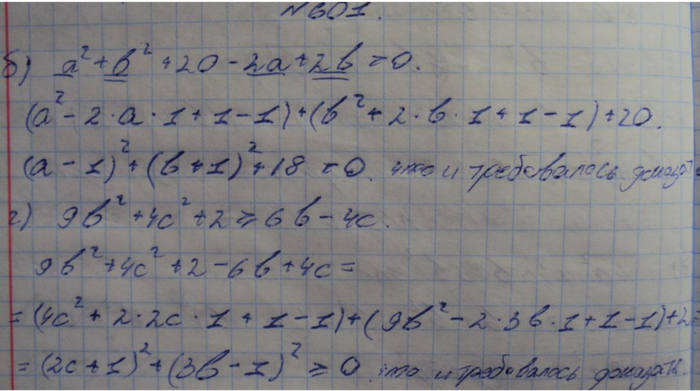 №601.
б) a² + b² + 20 - 2a + 2b > 0.
(a² - 2·a·1 + 1 - 1) + (b² + 2·b·1 + 1 - 1) + 20.
(a - 1)² + (b + 1)² + 18 > 0. что и требовалось доказать
г) 9b² + 4c² + 2 ≥ 6b - 4c.
9b² + 4c² + 2 - 6b + 4c =
= (4c² + 2·2c·1 + 1 - 1) + (9b² - 2·3b·1 + 1 - 1) + 2 =
= (2c + 1)² + (3b - 1)² ≥ 0. что и требовалось доказать.